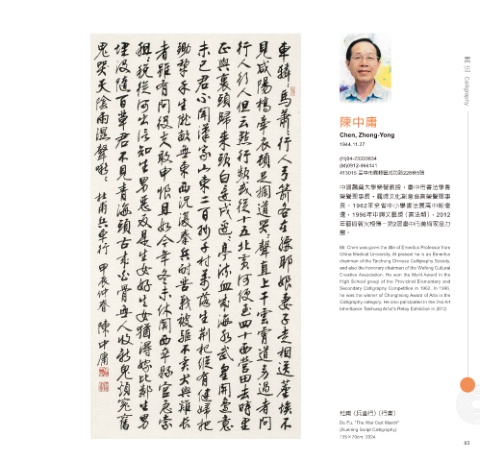 車轔轔馬蕭蕭行人弓箭各在腰耶娘妻子走相送塵埃不
見咸陽橋牽衣頓足攔道哭哭聲直上干雲霄道旁過者問
行人行人但云點行頻或從十五北防河便至四十西營田去時里
正與裹頭歸來頭白還戍邊邊亭流血成海水武皇開邊意
未已君不聞漢家山東二百州千村萬落生荊杞縱有健婦把
鋤犁禾生隴畝無東西況復秦兵耐苦戰被驅不異犬與雞長
者雖有問役夫敢申恨且如今年冬未休關西卒縣官急索
租租稅從何出信知生男惡反是生女好生女猶得嫁比鄰生男
埋沒隨百草君不見青海頭古來白骨無人收新鬼煩冤舊
鬼哭天陰雨濕聲啾啾 杜甫兵車行 甲辰仲春 陳中庸
書法 Calligraphy
陳中庸
Chen, Zhong-Yong
1944.11.27
中國醫藥大學榮譽教授，臺中市書法學會
榮譽理事長，文化創意協會榮譽理事
長。1962年全省中小學書法獲高中組優
選，1996年中興文藝獎（書法類），2012
年藝術薪火相傳─第2屆臺中藝術家接力
展。
Mr. Chen was given the title of Emeritus Professor from
China Medical University. At present he is an Emeritus
chairman of the Taichung Chinese Calligraphy Society
and also the honorary chairman of the Cultural
Creative Association. He won the Merit Award in the
High School group of the Provincial Elementary and
Secondary Calligraphy Competition in 1962. In 1996,
he was the winner of Chungxing Award of Arts in the
Calligraphy category. He also participated in the 2nd Art
Inheritance Taichung Artist's Relay Exhibition in 2012.
杜甫〈兵車行〉（行書）
Du Fu, "The War Cart March"
(Running Script Calligraphy)
135×70cm 2024